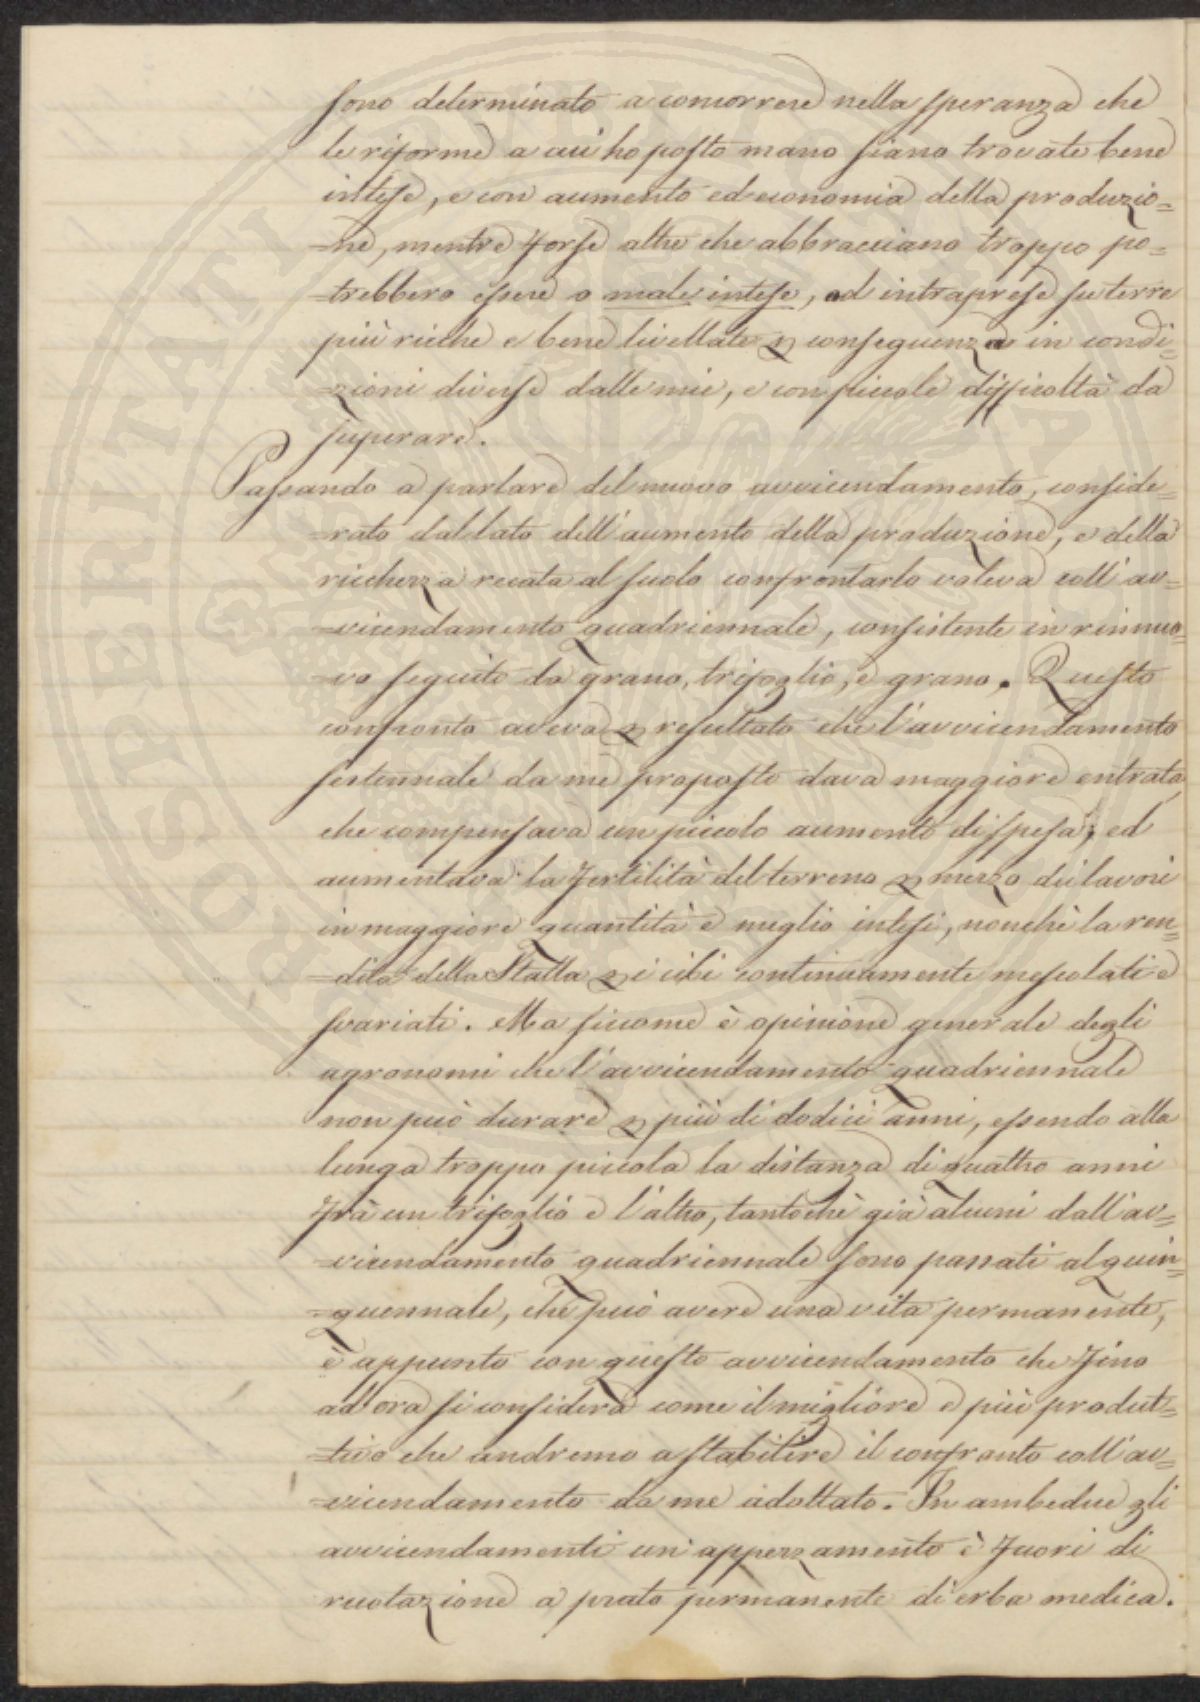 sono determinato a concorrere nella speranza che
le riforme a cui ho posto mano siano trovate bene
intese, e con aumento ed economia della produzio=
=ne, mentre forse altre che abbracciano troppo po=
=trebbero essere o male intese, od intraprese su terre
più ricche e bene livellate p conseguenza in condi=
=zioni diverse dalle mie, e con piccole difficoltà da
superare.
Passando a parlare del nuovo avvicendamento, conside=
=rato dal lato dell'aumento della produzione, e della
ricchezza recata al suolo confrontarlo voleva coll'av=
=vicendamento quadriennale, consistente in rinnuo=
=vo seguito da grano, trifoglio, e grano. Questo
confronto aveva p resultato che l'avvicendamento
sestennale da me proposto dava maggiore entrata
che compensava un piccolo aumento di spesa; ed
aumentava la fertilità del terreno p mezzo di lavori
in maggiore quantità e meglio intesi, nonchè la ren=
=dita della Stalla p i cibi continuamente mescolati e
svariati. Ma siccome è opinione generale degli
agronomi che l'avvicendamento quadriennale
non può durare p più di dodici anni, essendo alla
lunga troppo piccola la distanza di quattro anni
frà un trifoglio e l'altro, tantochè già alcuni dall'av=
=vicendamento quadriennale sono passati al quin=
=quennale, che può avere una vita permanente,
è appunto con questo avvicendamento che fino
ad ora si considera come il migliore e più produt=
=tivo che andremo a stabilire il confronto coll'av=
=vicendamento da me adottato. In ambedue gli
avvicendamenti un appezzamento è fuori di
ruotazione a prato permanente di erba medica.
PROSPERITATI PUBLICAE